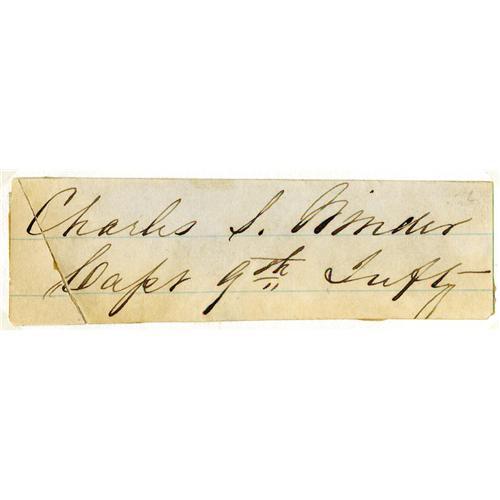 Charles S. Winder
Capt 9th Infty